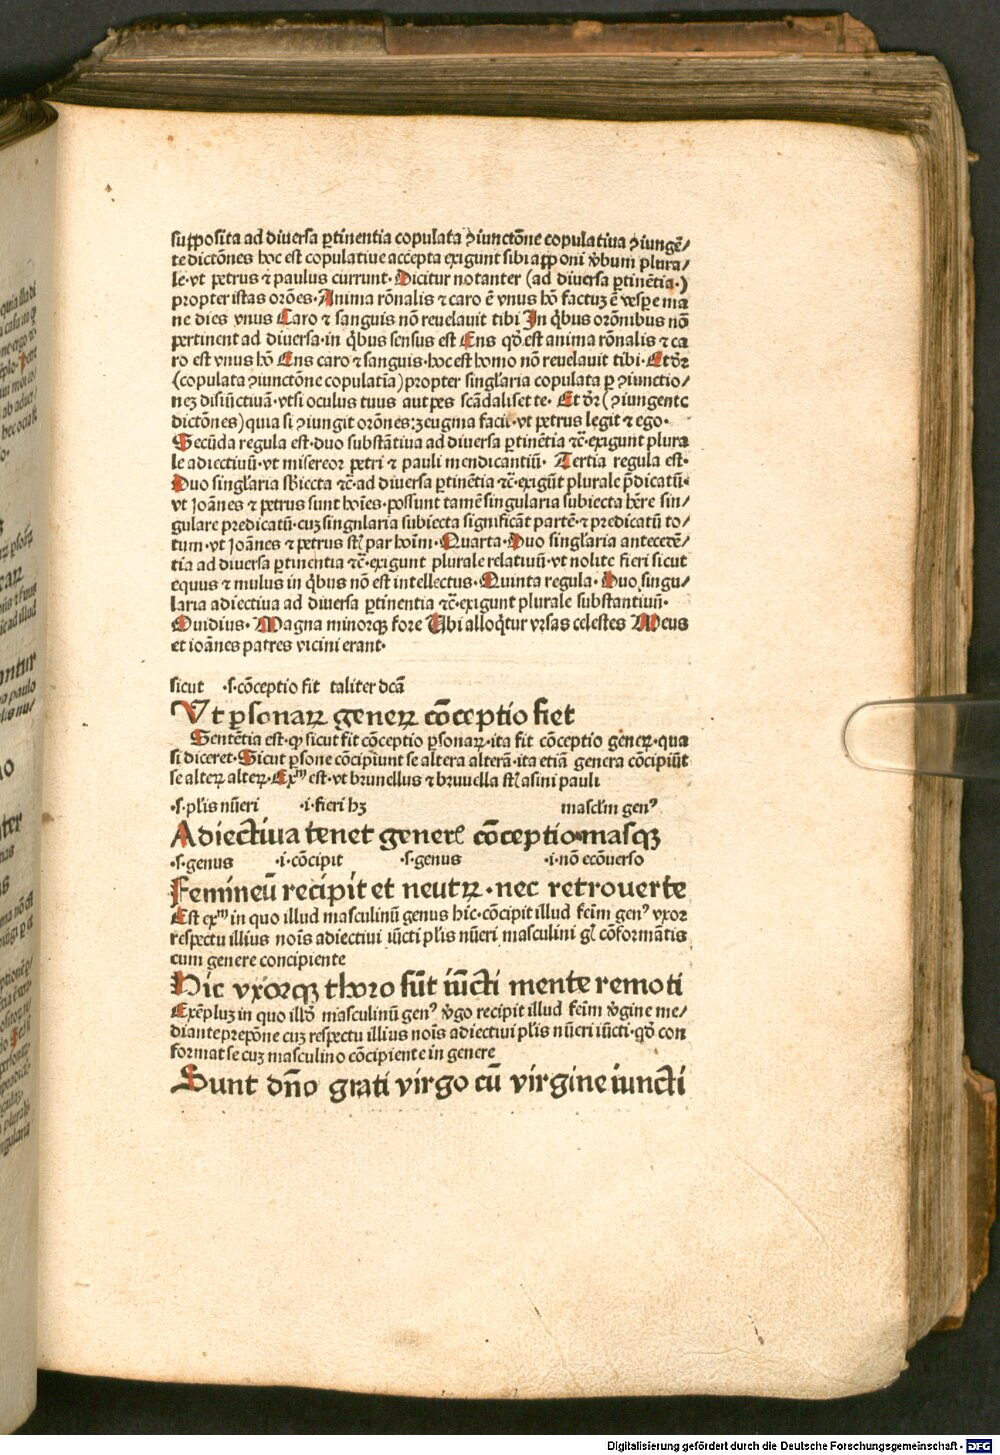 supposita ad diuersa ꝑtinentia copulata ꝯiunctōne copulatiua ꝯiungē⸗
te dictōnes hoc est copulatiue accepta exigunt sibi apponi v̾bum plura⸗
le·vt petrus ⁊ paulus currunt· Dicitur notanter (ad diuersa ꝑtinētia·)
propter istas orōes· Anima rōnalis ⁊ caro ē vnus hō factuꝫ ē vespe ma
ne dies vnus Caro ⁊ sanguis nō reuelauit tibi In qͥbus orōnibus nō
pertinent ad diuersa·in qͥbus sensus est Ens qd̓ est anima rōnalis ⁊ ca
ro est vnus hō Ens caro ⁊ sanguis·hoc est homo nō reuelauit tibi· Et dr̄
(copulata ꝯiunctōne copulatīa) propter singl̓aria copulata ꝑ ꝯiunctio⸗
neꝫ disiūctiuā·vt si oculus tuus aut pes scādaliset te· Et dr̄ (ꝯiungente
dictōnes) quia si ꝯiungit orōnes:zeugma facit·vt petrus legit ⁊ ego·
Secūda regula est·duo substātiua ad diuersa ꝑtinētia ⁊c̄·exigunt plura
le adiectiuū·vt misereor petri ⁊ pauli mendicantiū· Tertia regula est·
Duo singl̓aria sb̓iecta ⁊c̄·ad diuersa ꝑtinētia ⁊c̄·exigūt plurale p̄dicatū·
vt Joānes ⁊ petrus sunt hoīes·possunt tamē singularia subiecta hr̄e sin⸗
gulare predicatū·cuꝫ singnlaria subiecta significāt partē·⁊ predicatū to⸗
tum·vt Joānes ⁊ petrus st̄ par hoīm· Quarta· Duo singl̓aria antecedē⸗
tia ad diuersa ꝑtinentia ⁊c̄·exigunt plurale relatiuū·vt nolite fieri sicut
equus ⁊ mulus in qͥbus nō est intellectus· Quinta regula· Duo singu⸗
laria adiectiua ad diuersa ꝑtinentia ⁊c̄·exigunt plurale substantiuū·
Ouidius· Magna minorqꝫ fore Ubi alloqͥtur vrsas celestes Meus
et ioānes patres vicini erant·
sicut ·s·cōceptio fit taliter dc̄ā
Vt ꝑsonaꝝ geneꝝ cōceptio fiet
Sentētia est·ꝙ sicut fit cōceptio ꝑsonaꝝ·ita fit cōceptio geneꝝ·qua
si diceret· Sicut ꝑsone cōcipiunt se altera alterā·ita etiā genera cōcipiūt
se alteꝝ alteꝝ· Exᵐ est·vt brunellus ⁊ brunella st̄ asini pauli
·s·pl̓is nūeri ·i·fieri hꝫ mascl̓m genꝰ
Adiectiua tenet generꝭ cōceptio·masqꝫ
·s·genus ·i·cōcipit ·s·genus ·i·nō ecōuerso
Femineū recipit et neutꝝ·nec retrouerte
Est exᵐ in quo illud masculinū genus hic·cōcipit illud feīm genꝰ vxor
respectu illius noīs adiectiui iūcti pl̓is nūeri masculini gl̓ cōformātis
cum genere concipiente
Hic vxorqꝫ thoro sūt iūcti mente remoti
Exēpluꝫ in quo illd̓ masculinū genꝰ v̾go recipit illud feīm v̾gine me⸗
diante prepōne cuꝫ respectu illius noīs adiectiui pl̓is nūeri iūcti·qd̓ con
format se cuꝫ masculino cōcipiente in genere
Sunt dn̄o grati virgo cū virgine iuncti
Digitalisierung gefördert durch die Deutsche Forschungsgemeinschaft - DFG